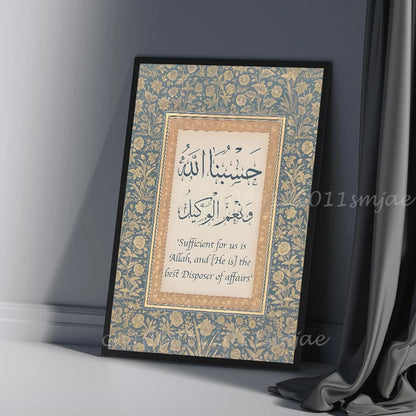 حَسْبُنَا اللَّهُ
وَنِعْمَ الْوَكِيلُ
'Sufficient for us is
Allah, and [He is] the
best Disposer of affairs'
011smjae